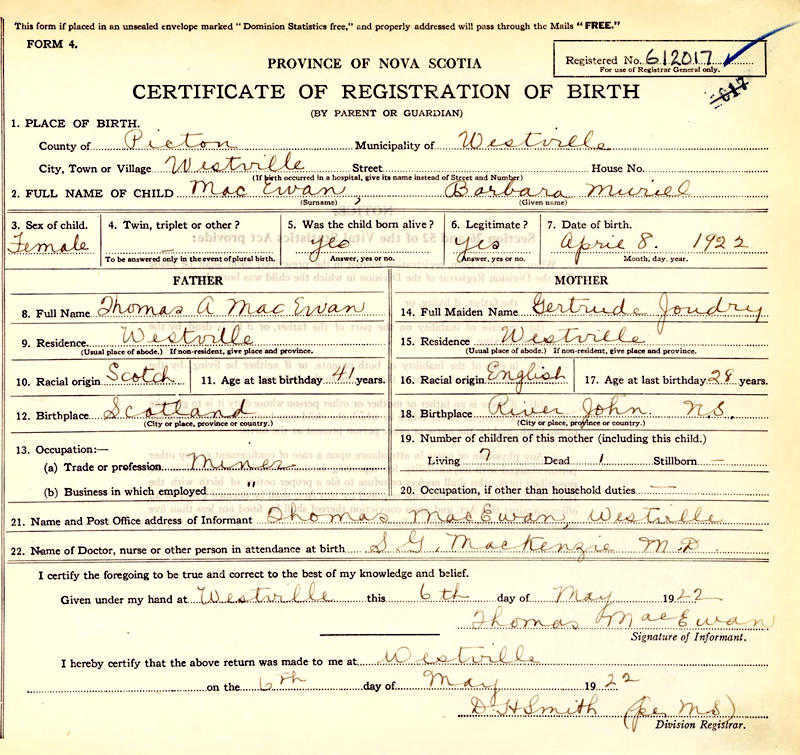 This form if placed in an unsealed envelope marked "Dominion Statistics free," and properly addressed will pass through the Mails "FREE."
FORM 4.
Registered No. 612017
For use of Registrar General only.
617
PROVINCE OF NOVA SCOTIA
CERTIFICATE OF REGISTRATION OF BIRTH
(BY PARENT OR GUARDIAN)
1. PLACE OF BIRTH.
County of Picton Municipality of Westville
City, Town or Village Westville Street House No.
(If birth occurred in a hospital, give its name instead of Street and Number)
2. FULL NAME OF CHILD MacEwan, Barbara Muriel
(Surname) (Given name)
3. Sex of child. 4. Twin, triplet or other? 5. Was the child born alive? 6. Legitimate? 7. Date of birth.
Female — yes yes April 8. 1922
To be answered only in the event of plural birth. Answer, yes or no. Answer, yes or no. Month, day, year.
FATHER MOTHER
8. Full Name Thomas A MacEwan 14. Full Maiden Name Gertrude Joudry
9. Residence. Westville 15. Residence Westville
(Usual place of abode.) If non-resident, give place and province. (Usual place of abode.) If non-resident, give place and province.
10. Racial origin Scotch 11. Age at last birthday 41 years. 16. Racial origin English 17. Age at last birthday 28 years.
12. Birthplace Scotland 18. Birthplace River John. N.S.
(City or place, province or country.) (City or place, province or country.)
13. Occupation:— 19. Number of children of this mother (including this child.)
(a) Trade or profession Miner Living 7 Dead 1 Stillborn —
(b) Business in which employed " 20. Occupation, if other than household duties —
21. Name and Post Office address of Informant Thomas MacEwan, Westville
22. Name of Doctor, nurse or other person in attendance at birth S. G. MacKenzie M.D.
I certify the foregoing to be true and correct to the best of my knowledge and belief.
Given under my hand at Westville this 6th day of May 1922
Thomas MacEwan
Signature of Informant.
I hereby certify that the above return was made to me at Westville
on the 6th day of May 1922
D. H Smith (per M.S)
Division Registrar.